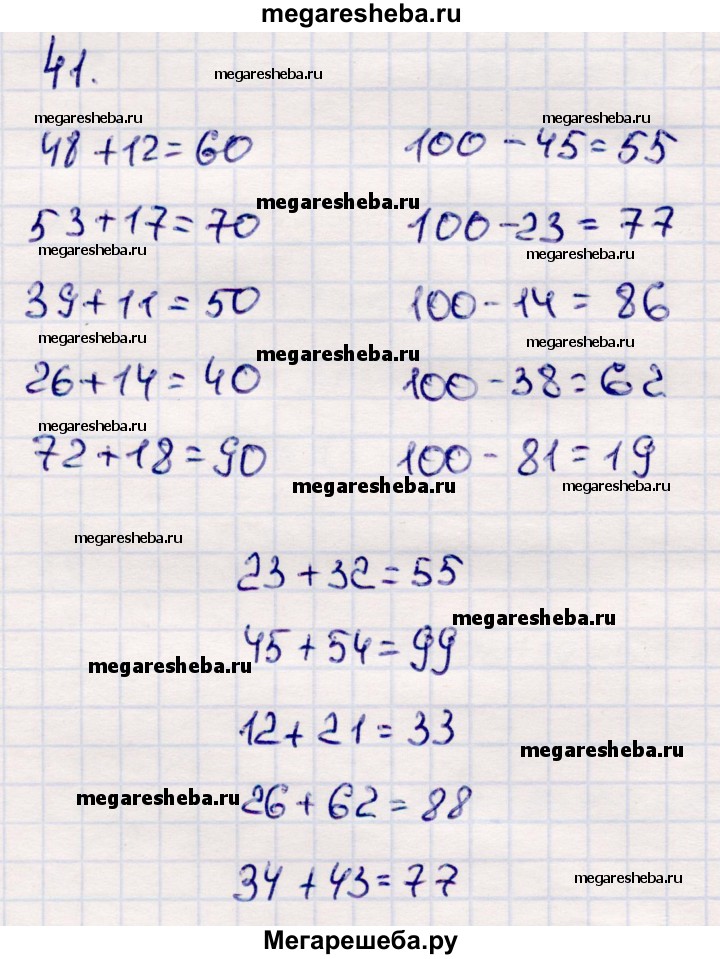 megaresheba.ru
41.
megaresheba.ru
megaresheba.ru
megaresheba.ru
48 + 12 = 60
100 - 45 = 55
megaresheba.ru
53 + 17 = 70
100 - 23 = 77
megaresheba.ru
megaresheba.ru
39 + 11 = 50
100 - 14 = 86
megaresheba.ru
megaresheba.ru
megaresheba.ru
26 + 14 = 40
100 - 38 = 62
megaresheba.ru
72 + 18 = 90
100 - 81 = 19
megaresheba.ru
megaresheba.ru
megaresheba.ru
23 + 32 = 55
megaresheba.ru
45 + 54 = 99
megaresheba.ru
12 + 21 = 33
megaresheba.ru
megaresheba.ru
26 + 62 = 88
34 + 43 = 77
megaresheba.ru
Мегарешеба.ру